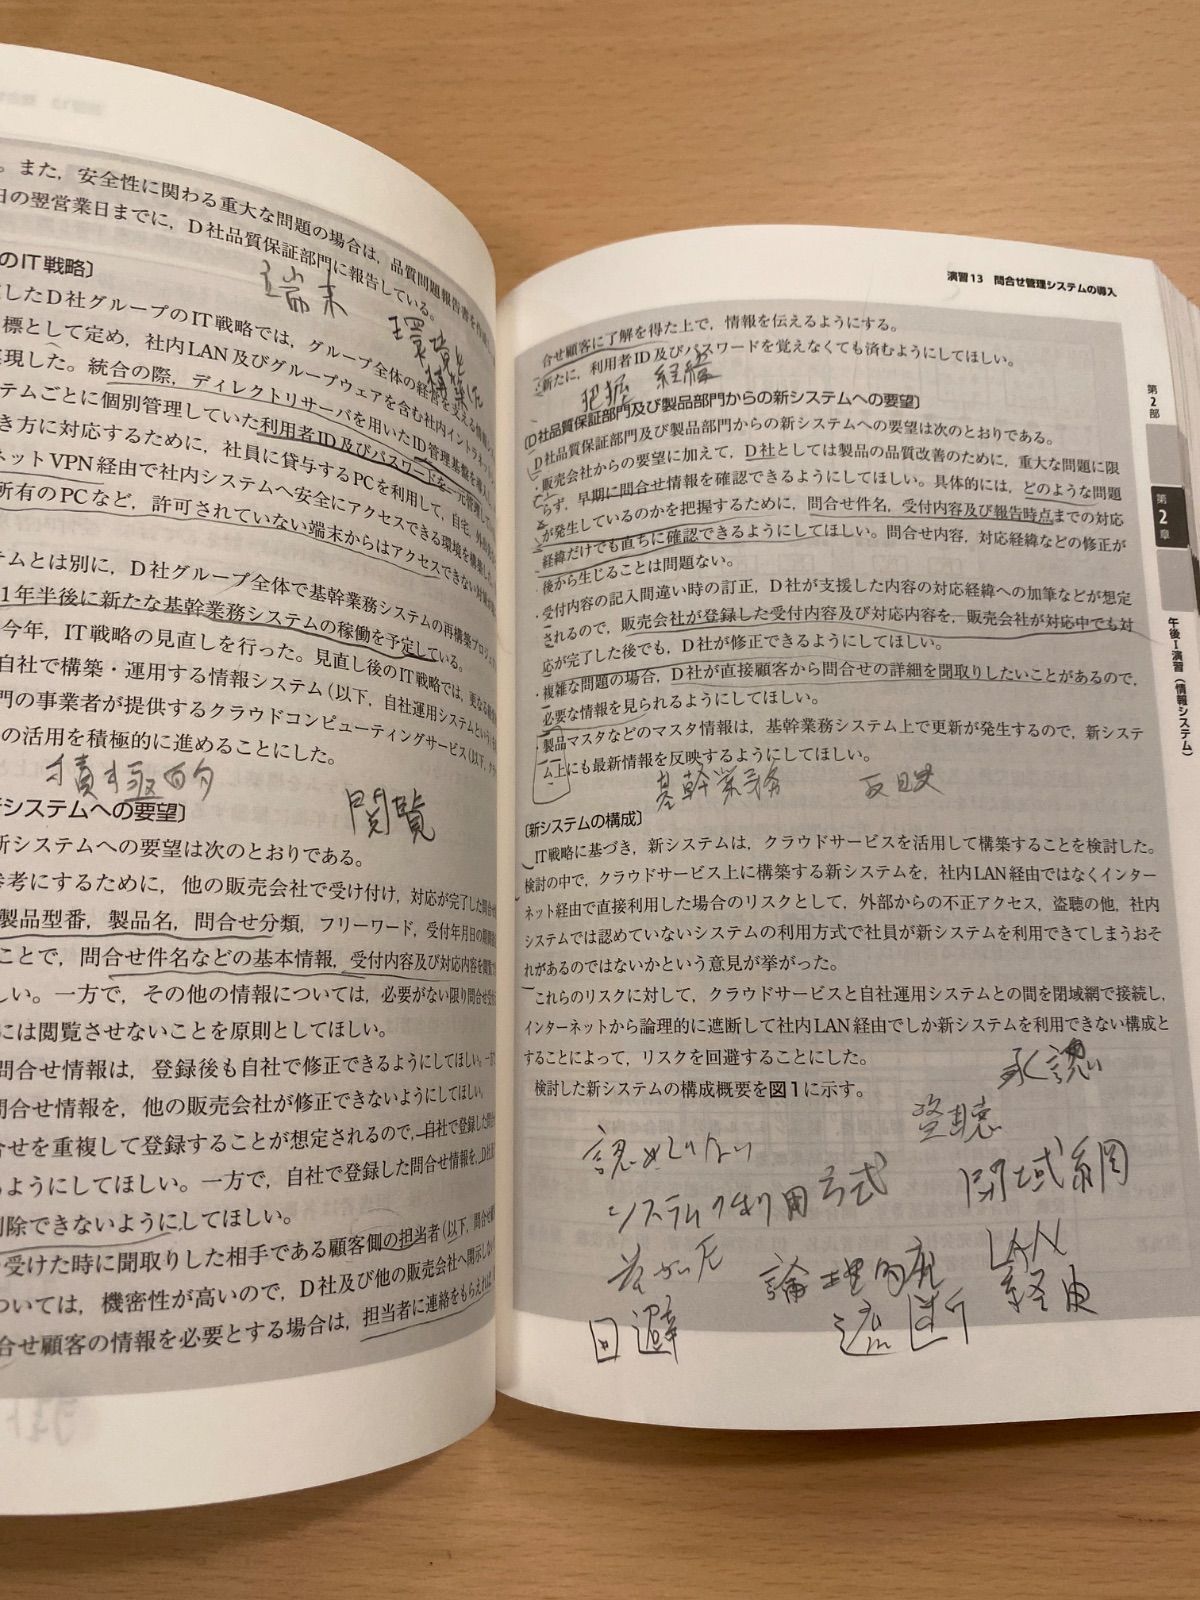 。また，安全性に関わる重大な問題の場合は，品質問題報告書を作成
日の翌営業日までに，D社品質保証部門に報告している。
端末
のIT戦略〕
環境
構築
したD社グループのIT戦略では，グループ全体の経営を支える情報シ
標として定め，社内LAN及びグループウェアを含む社内イントラネット
実現した。統合の際，ディレクトリサーバを用いたID管理基盤を導入し，
テムごとに個別管理していた利用者ID及びパスワードを一元管理して
き方に対応するために，社員に貸与するPCを利用して，自宅，外出
ネットVPN経由で社内システムへ安全にアクセスできる環境を構築した。
所有のPCなど，許可されていない端末からはアクセスできない対策が
テムとは別に，D社グループ全体で基幹業務システムの再構築プロジェ
1年半後に新たな基幹業務システムの稼働を予定している。
今年，IT戦略の見直しを行った。見直し後のIT戦略では，更なる
自社で構築・運用する情報システム（以下，自社運用システムという）
門の事業者が提供するクラウドコンピューティングサービス（以下，ク
の活用を積極的に進めることにした。
積極的
閲覧
新システムへの要望〕
新システムへの要望は次のとおりである。
参考にするために，他の販売会社で受け付け，対応が完了した問合せ
製品型番，製品名，問合せ分類，フリーワード，受付年月日の期間
ことで，問合せ件名などの基本情報，受付内容及び対応内容を閲覧
しい。一方で，その他の情報については，必要がない限り問合せ受付
には閲覧させないことを原則としてほしい。
問合せ情報は，登録後も自社で修正できるようにしてほしい。一
問合せ情報を，他の販売会社が修正できないようにしてほしい。
合せを重複して登録することが想定されるので，自社で登録した問合
るようにしてほしい。一方で，自社で登録した問合せ情報を，D社
削除できないようにしてほしい。
受けた時に聞取りした相手である顧客側の担当者（以下，問合せ
ついては，機密性が高いので，D社及び他の販売会社へ開示しな
合せ顧客の情報を必要とする場合は，担当者に連絡をもらえれば，
演習13 問合せ管理システムの導入
合せ顧客に了解を得た上で，情報を伝えるようにする。
・新たに，利用者ID及びパスワードを覚えなくても済むようにしてほしい。
把握 経緯
〔D社品質保証部門及び製品部門からの新システムへの要望〕
D社品質保証部門及び製品部門からの新システムへの要望は次のとおりである。
・販売会社からの要望に加えて，D社としては製品の品質改善のために，重大な問題に限
らず，早期に問合せ情報を確認できるようにしてほしい。具体的には，どのような問題
が発生しているのかを把握するために，問合せ件名，受付内容及び報告時点までの対応
経緯だけでも直ちに確認できるようにしてほしい。問合せ内容，対応経緯などの修正が
後から生じることは問題ない。
・受付内容の記入間違い時の訂正，D社が支援した内容の対応経緯への加筆などが想定
されるので，販売会社が登録した受付内容及び対応内容を，販売会社が対応中でも対
応が完了した後でも，D社が修正できるようにしてほしい。
・複雑な問題の場合，D社が直接顧客から問合せの詳細を聞取りしたいことがあるので，
必要な情報を見られるようにしてほしい。
・製品マスタなどのマスタ情報は，基幹業務システム上で更新が発生するので，新システ
ム上にも最新情報を反映するようにしてほしい。
基幹業務 反映
〔新システムの構成〕
IT戦略に基づき，新システムは，クラウドサービスを活用して構築することを検討した。
検討の中で，クラウドサービス上に構築する新システムを，社内LAN経由ではなくインター
ネット経由で直接利用した場合のリスクとして，外部からの不正アクセス，盗聴の他，社内
システムでは認めていないシステムの利用方式で社員が新システムを利用できてしまうおそ
れがあるのではないかという意見が挙がった。
これらのリスクに対して，クラウドサービスと自社運用システムとの間を閉域網で接続し，
インターネットから論理的に遮断して社内LAN経由でしか新システムを利用できない構成と
することによって，リスクを回避することにした。
検討した新システムの構成概要を図1に示す。
承認
盗聴
認めていない
システム利用方式
閉域網
論理的に
遮断
LAN
経由
回避
第2部
第2章
午後Ⅰ演習（情報システム）